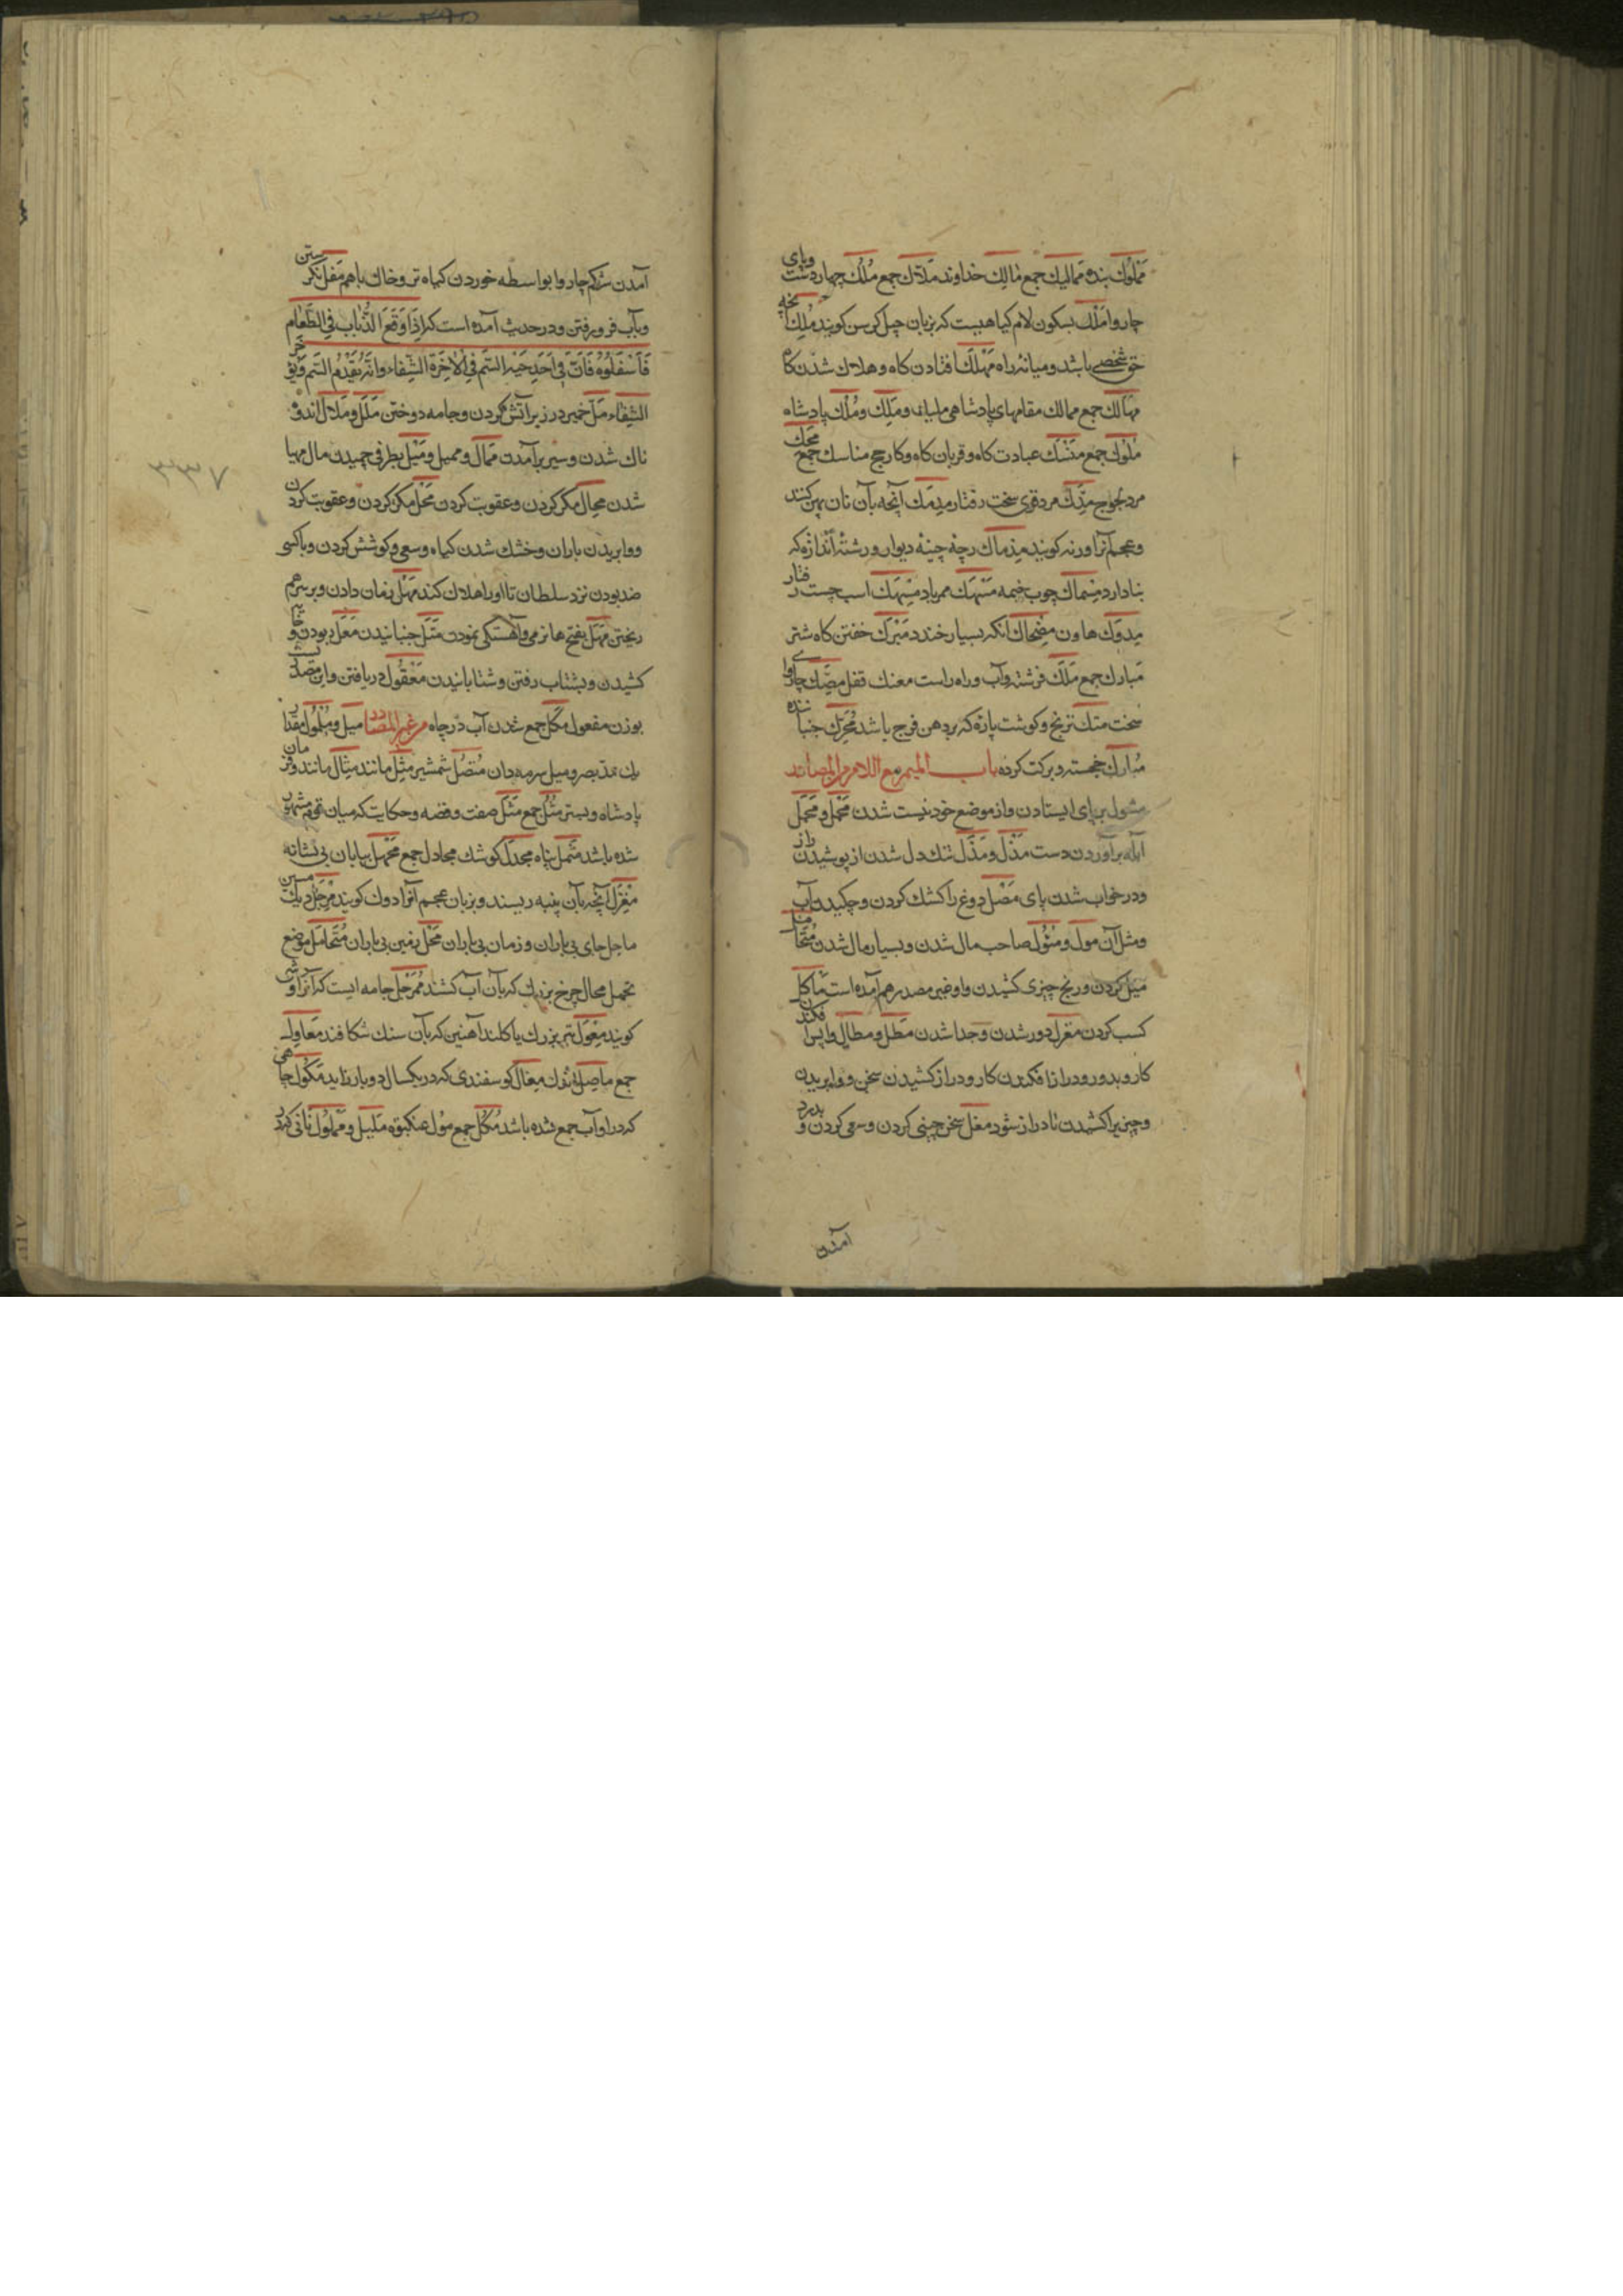 مَمْلُوك بنده مَماليك جمع مٰالِك خداوند مَلّاك جمع مُلْك چهار دست وپای
چاروا مَلْك بسكون لام كياهيست كه بزبان جيل كرسن كويند مُلِك آنچه
حق شخصی باشد وميانۀ راه مَهْلَك افتادن كاه وهلاك شدن كا
مهٰالك جمع ممالك مقامهای پادشاهی مليك ومَلِك ومُلْك پادشاه
مُلوُك جمع مَنْسَك عبادت كاه وقربان كاه وكار حج مناسك جمع مَحِك
مرد لجوج مِدَّك مرد قوی سخت رفتار مِدمَك آنچه بآن نان پهن كنند
وعجم آنرا ورنه كويند مِدماك رجۀ چينۀ ديوار ورشتۀ اندازه كه
بنا دارد مِسْماك چوب خيمه مَسْهَك ممر باد مِسْهَك اسب چست رفتار
مِدوَك هاون مِضْحاك انكه بسيار خندد مَبْرَك خفتن كاه شتر
مَبارك جمع مَلَك فرشته وآب وراه راست معنك قفل مِصَك چاروای
سخت متك ترنج وكوشت پارۀ كه بر دهن فرج باشد مُحَرَّك جنبا شده
مُبارك خجسته وبركت كرده باب الميم مع اللام من المصادر
مثول بر پای ايستادن واز موضع خود نيست شدن مَجْل ومَجَل
آبله برآوردن دست مَذْل ومَذَل تنك دل شدن از پوشيدن راز
ودر خواب شدن پای مَصْل دوغ را كشك كردن وچكيدن آب
ومثل آن مول ومُئُول صاحب مال شدن وبسيار مال شدن مُتَحامَل
ميل كردن ورنج چيزی كشيدن واو غير مصدر هم آمده است مَاكل
كسب كردن مَعْزل دور شدن وجدا شدن مَطل ومطال واپس افكندن
كار وبدور ودراز افكندن كار ودراز كشيدن سخن ووابريدن
وچيزيرا كشيدن تا دراز شود مغل سخن چينی كردن وسعی كردن و بدرد
آمدن
آمدن شكم چاروا بواسطه خوردن كياه تر وخاك باهم مَقل نكرستن
وبآب فرو رفتن ودر حديث آمده است كه اِذَا وَقَعَ الذُّبٰاب فِی الطَّعٰام
فَاَمْقَلُوُه فَاِنَّ فِی اَحَدِ جَنٰاحَيْهِ السَّم فِی الْاٰخِرَة الشِّفٰاء وانّه يُقَدِّمُ السَّم وَيُؤَخِّر
الشِّفٰاء مَلّ خمير در زير آتش كردن وجامه دوختن مَلَل ومَلال اندوه
ناك شدن وسير برآمدن مَمٰال ومميل ومَيْل بطرفی چميدن مال مهيا
شدن محال مكر كردن وعقوبت كردن مَحْل مكر كردن وعقوبت كردن
ووابريدن باران وخشك شدن كياه وسعی وكوشش كردن وباكسی
ضد بودن نزد سلطان تا اورا هلاك كند مَهْل زمان دادن وبر سر هم
ريختن مَهَل بفتح ها نرمی وآهستكی نمودن مَتْل جنبانيدن مَعْل ربودن وخايه
كشيدن وبشتاب رفتن وشتابانيدن مَعْقُول دريافتن واين مصدرست
بوزن مفعول مكل جمع شدن آب در چاه من غير المصادر ميل ومُلْمُول مقدار
يك مد بصر وميل سرمه دان مُنصُل شمشير مِثْل مانند مِثٰال مانند وفرمان
پادشاه وبستر مُثُل جمع مَثَل صفت وقصه وحكايت كه ميان قوم مشهور
شده باشد مَثْمل پناه مِجدَل كوشك مجادل جمع مَجْهل بيابان بی نشانه
مِغْزَل آنچه بآن پنبه ريسند وبزبان عجم آنرا دوك كويند مِرْجَل ديك مسين
ماحل جای بی باران وزمان بی باران مَحْل زمين بی باران مُتَحامَل موضع
تحمل محال چرخ بزرك كه بآن آب كشند مُمَرْجل جامه ايست كه آنرا وشی
كويند مِعْوَل تبر بزرك يا كلند آهنين كه بآن سنك شكافند مَعٰاوِل
جمع ماصِل اندك مِغٰال كوسفندی كه در يكسال دو بار زايد مَكُول چاهی
كه در او آب جمع شده باشد مُكُل جمع مُول عنكبوت مَليل ومَمْلُول نانی كه در
۷۳۳